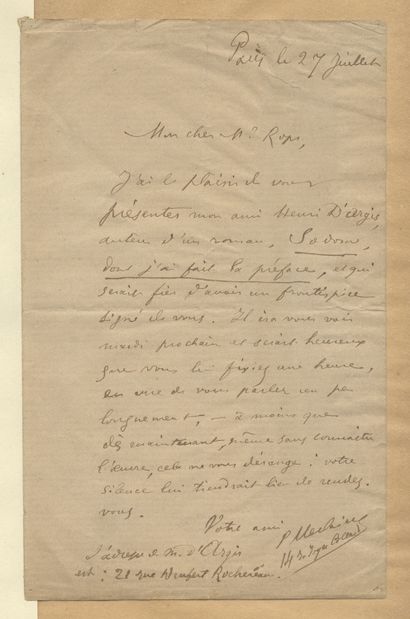 Paris le 27 Juillet
Mon cher Mr Rops,
J'ai le plaisir de vous
présenter mon ami Henri D'Argis,
auteur d'un roman, Sodome,
dont j'ai fait la préface, et qui
serait fier d'avoir un frontispice
signé de vous. Il ira vous voir
mardi prochain et serait heureux
que vous lui fixiez une heure,
en vue de vous parler un peu
longuement, — à moins que
dès maintenant, même sans connaître
l'œuvre, cela ne vous dérange : votre
silence lui tiendrait lieu de rendez-
vous.
Votre ami
P Verlaine
L'adresse de M. d'Argis
est : 21 rue Denfert Rochereau.